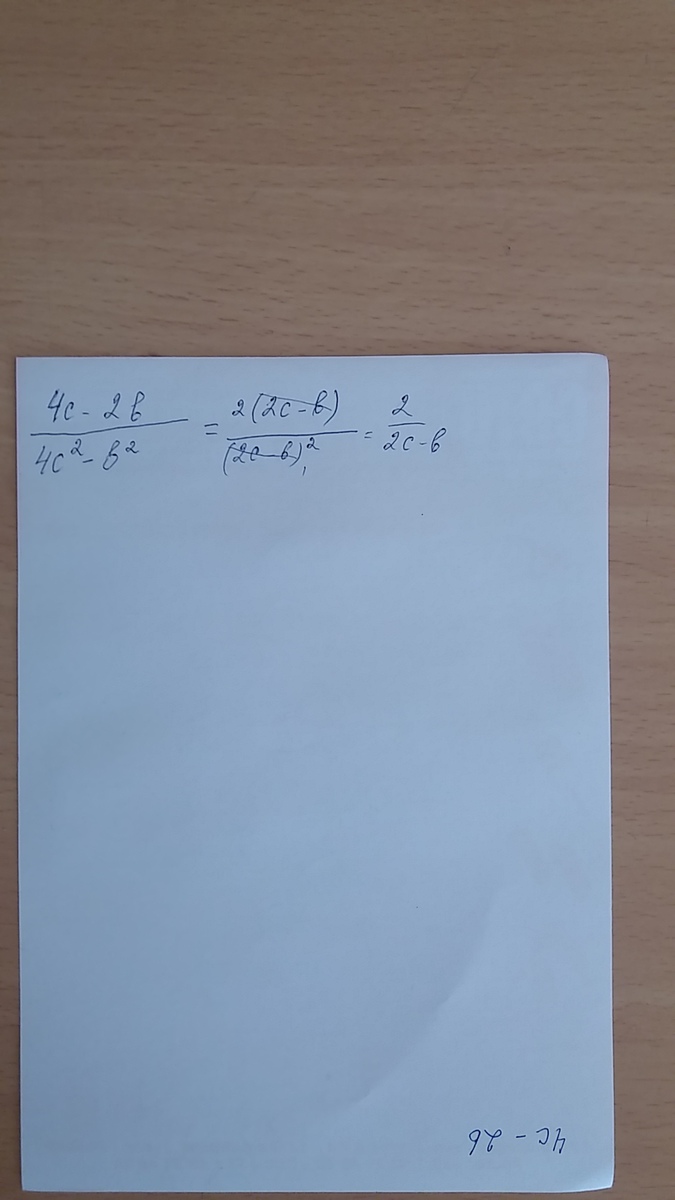 4c - 2b / 4c² - b² = 2(2c - b) / (2c - b)² = 2 / 2c - b
4c - 2b